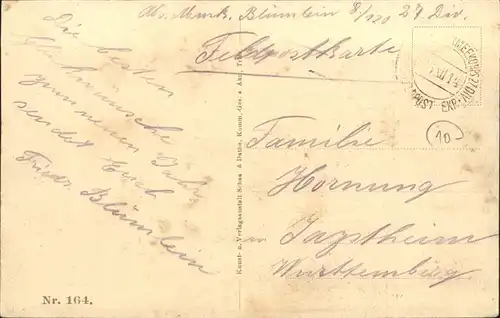 Abs. Musk. Blümlein 8/120 27 Div.
Feldpostkarte
Die besten
Glückwünsche
zum neuen Jahr
sendet Euch
Friedr. Blümlein
Familie
Hornung
in Jagstheim
Württemberg.
10
Kunst- u. Verlagsanstalt Schaar & Dathe, Komm.-Ges. a. Akt., Trier
Nr. 164.